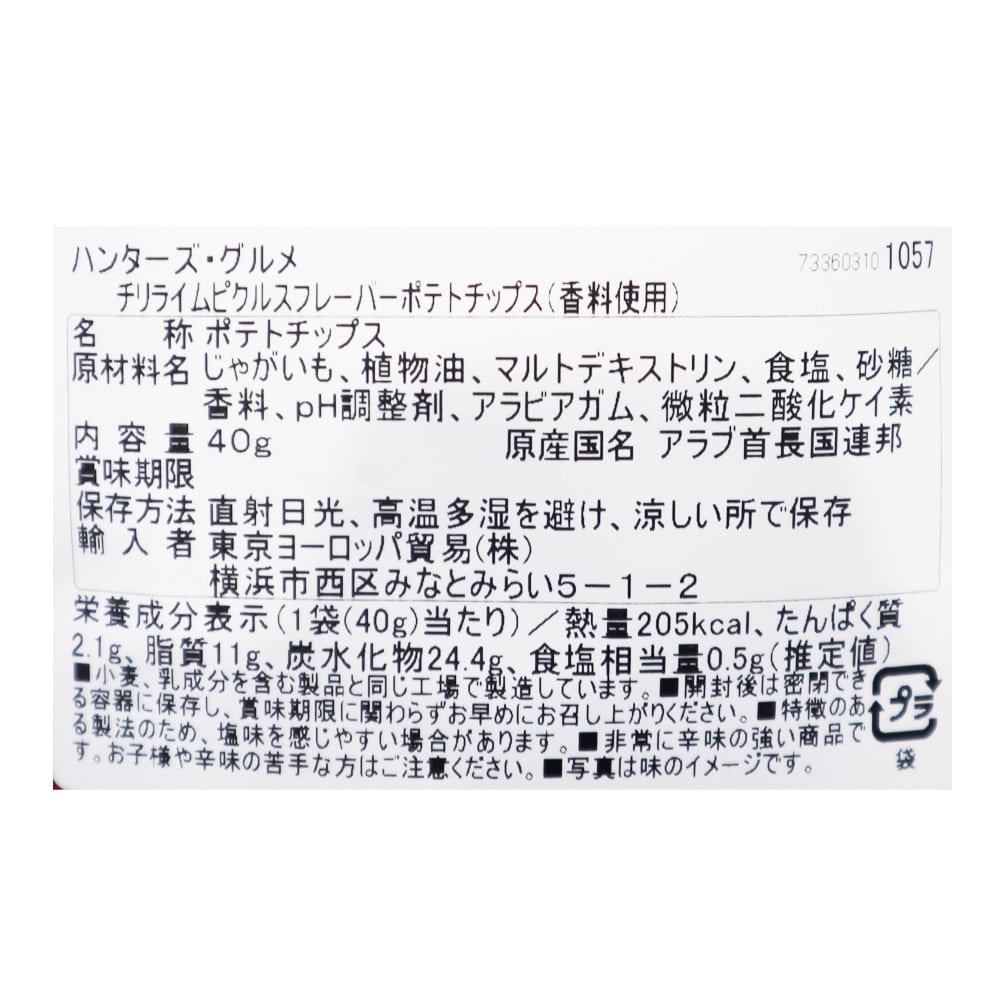 ハンターズ・グルメ 73360310 1057
チリライムピクルスフレーバーポテトチップス(香料使用)
名称 ポテトチップス
原材料名 じゃがいも、植物油、マルトデキストリン、食塩、砂糖/
香料、pH調整剤、アラビアガム、微粒二酸化ケイ素
内容量 40g 原産国名 アラブ首長国連邦
賞味期限
保存方法 直射日光、高温多湿を避け、涼しい所で保存
輸入者 東京ヨーロッパ貿易(株)
横浜市西区みなとみらい5-1-2
栄養成分表示(1袋(40g)当たり)/熱量205kcal、たんぱく質
2.1g、脂質11g、炭水化物24.4g、食塩相当量0.5g(推定値)
■小麦、乳成分を含む製品と同じ工場で製造しています。■開封後は密閉でき
る容器に保存し、賞味期限に関わらずお早めにお召し上がりください。■特徴のあ
る製法のため、塩味を感じやすい場合があります。■非常に辛味の強い商品で
す。お子様や辛味の苦手な方はご注意ください。■写真は味のイメージです。
プラ
袋